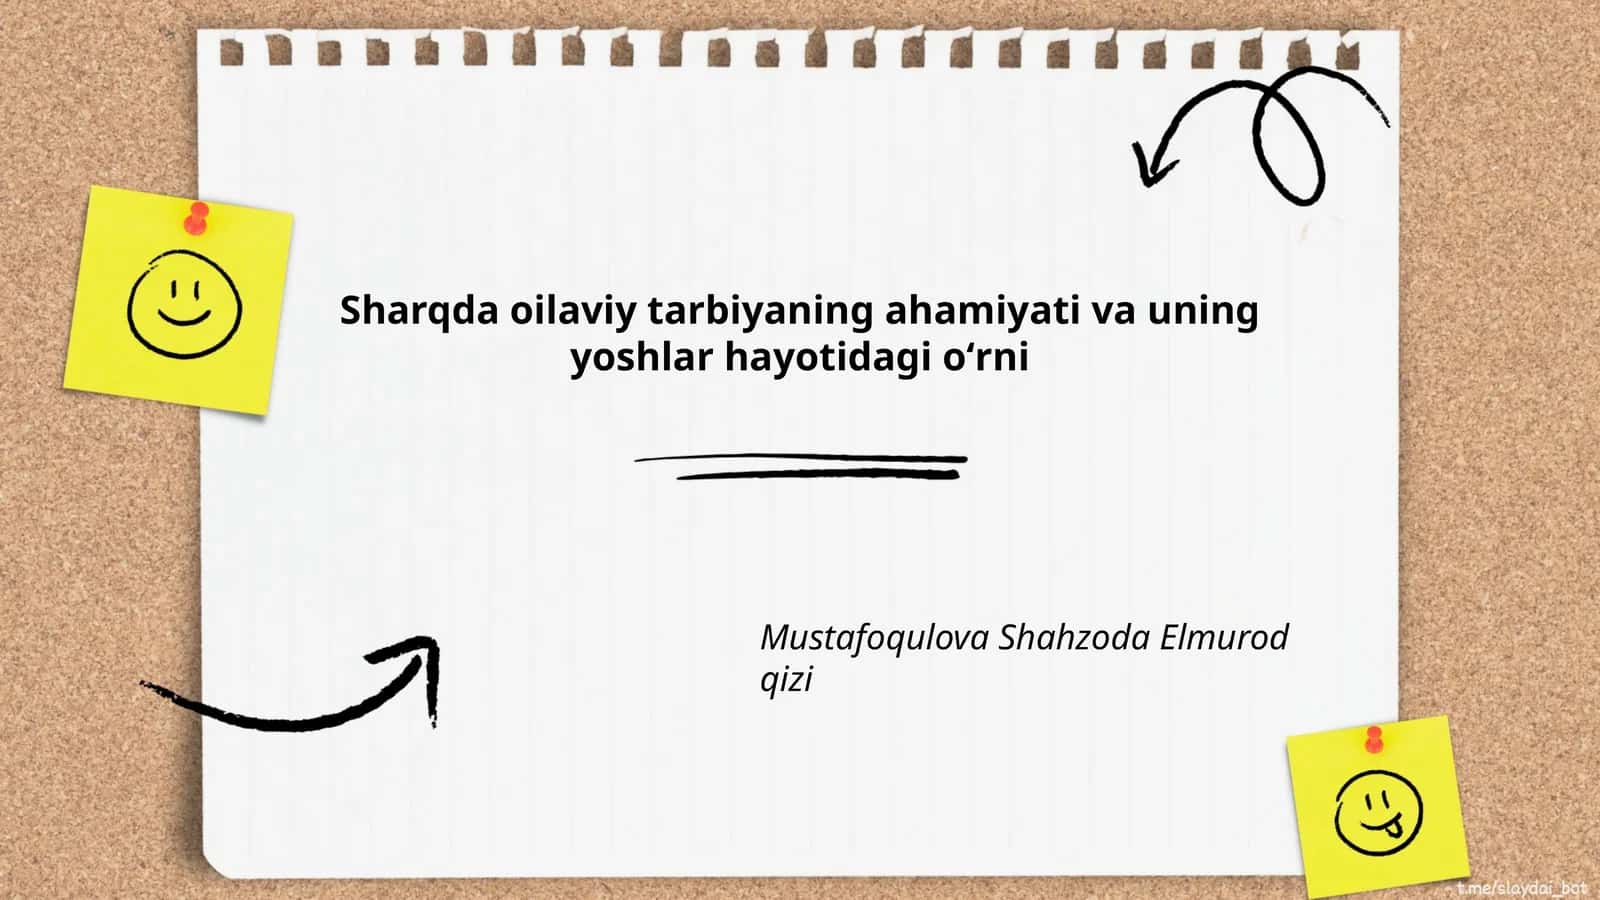 Sharqda oilaviy tarbiyaning ahamiyati va uning
yoshlar hayotidagi o‘rni
Mustafoqulova Shahzoda Elmurod
qizi
t.me/slaydai_bot